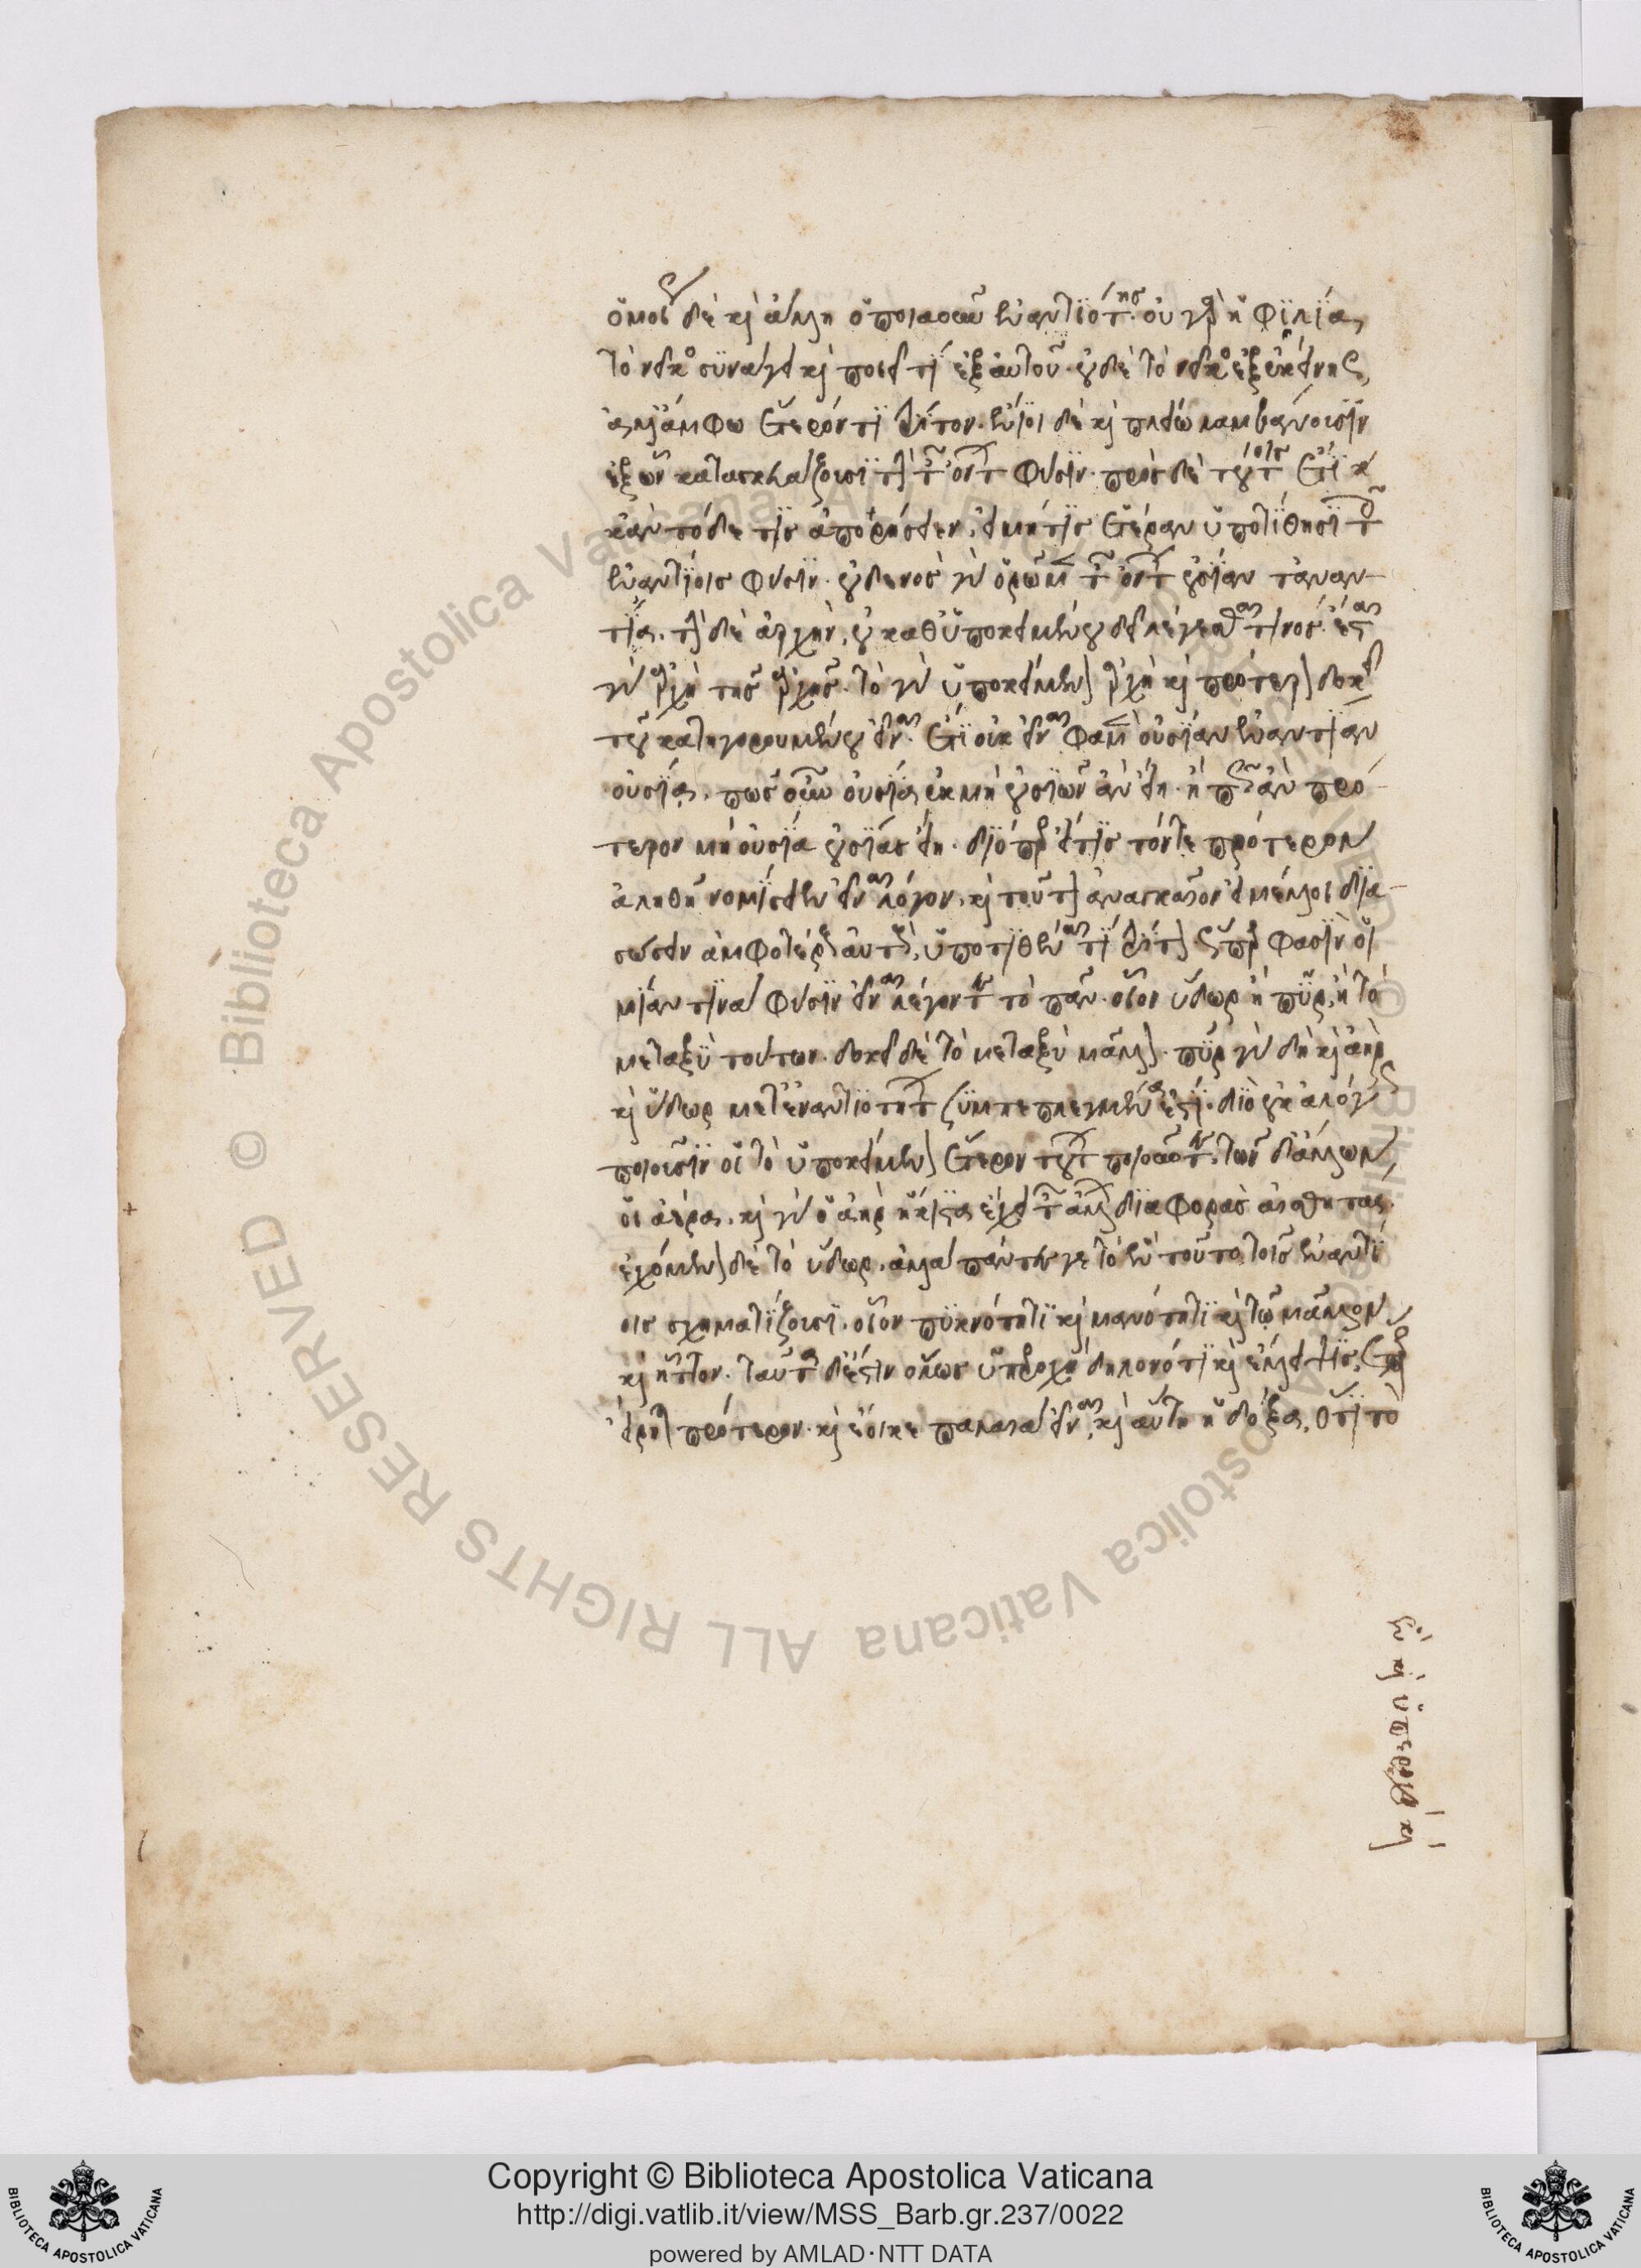 ὁμοίως δὲ καὶ ἄλλη ὁποιαοῦν ἐναντιότης. οὐ γὰρ ἡ φιλία
τὸ νεῖκος συνάγει καὶ ποιεῖ τι ἐξ αὐτοῦ. οὐδὲ τὸ νεῖκος ἐξ ἐκείνης,
ἀλλ' ἄμφω ἕτερόν τι τρίτον. ἔνιοι δὲ καὶ πλείω λαμβάνουσιν
ἐξ ὧν κατασκευάζουσι τὴν τῶν ὄντων φύσιν. πρὸς δὲ τούτοις ἔτι κ
κἂν τόδε τις ἀπορήσειεν, εἰ μή τις ἑτέραν ὑποτίθησι τοῖς
ἐναντίοις φύσιν. οὐδενὸς γὰρ ὁρῶμεν τῶν ὄντων οὐσίαν τἀναν
τία. τὴν δὲ ἀρχὴν, οὐ καθ' ὑποκειμένου δεῖ λέγεσθαι τινός. ἔσται
γὰρ ἀρχὴ τῆς ἀρχῆς. τὸ γὰρ ὑποκείμενον ἀρχὴ καὶ πρότερον δοκεῖ
τοῦ κατηγορουμένου εἶναι. ἔτι οὐκ εἶναι φαμὲν οὐσίαν ἐναντίαν
οὐσία. πῶς οὖν οὐσία ἐκ μὴ οὐσιῶν ἂν εἴη. ἢ πῶς ἂν πρό
τερον μὴ οὐσία οὐσίας εἴη. διόπερ εἴ τις τόν τε πρότερον
ἀληθῆ νομίσειεν εἶναι λόγον, καὶ τοῦτον ἀναγκαῖον εἰ μέλλοι δια
σώσειν ἀμφοτέρους αὐτοὺς, ὑποτιθέναι τί τρίτον ὥσπερ φασὶν οἱ
μίαν τινα φύσιν εἶναι λέγοντες τὸ πᾶν. οἷον ὕδωρ ἢ πῦρ, ἢ τὸ
μεταξὺ τούτων. δοκεῖ δὲ τὸ μεταξὺ μᾶλλον. πῦρ γὰρ δὴ καὶ ἀὴρ
καὶ ὕδωρ μετ' ἐναντιοτήτων συμπεπλεγμένα ἐστί. διὸ οὐκ ἀλόγως
ποιοῦσιν οἱ τὸ ὑποκείμενον ἕτερον τούτων ποιοῦντες. τῶν δ' ἄλλων,
οἱ ἀέρα. καὶ γὰρ ὁ ἀὴρ ἥκιστα ἔχει τῶν ἄλλων διαφορὰς αἰσθητάς.
ἐχόμενον δὲ τὸ ὕδωρ. ἀλλὰ πάντες γε τὸ ἓν τοῦτο τοῖς ἐναντί
οις σχηματίζουσι. οἷον πυκνότητι καὶ μανότητι καὶ τῷ μᾶλλον
καὶ ἧττον. ταῦτα δ' ἐστὶν ὅλως ὑπεροχὴ δηλονότι καὶ ἔλλειψις, ὥσπερ
εἴρηται πρότερον. καὶ ἔοικε παλαιὰ εἶναι, καὶ αὕτη ἡ δόξα, ὅτι τὸ
ἓν καὶ ὑπεροχὴ καὶ